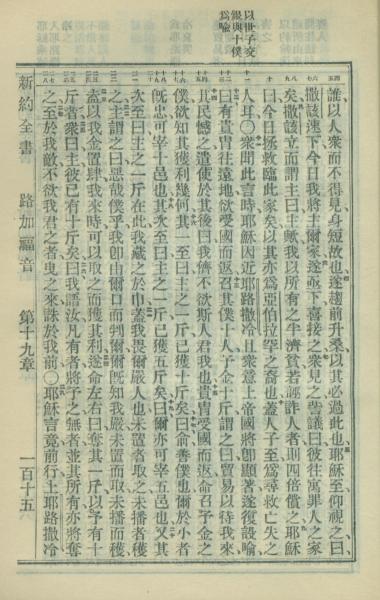 以世子交
銀與十僕
爲喩
誰以人衆而不得見身短故也遂趨前升桑以其必過此也耶穌至仰視之曰
撒該速下今日我將主爾家遂亟下喜接之衆見之訾議曰彼往寓罪人之家
矣撒該立而謂主曰主歟我以所有之半濟貧若誣詐人者則四倍償之耶穌
曰今日拯救臨此家矣以其亦爲亞伯拉罕之裔也蓋人子至爲尋救亡失之
人耳〇衆聞此言時耶穌因近耶路撒冷且衆意上帝國將卽顯著遂復設喩
曰有貴冑往遠地欲受國而返召其僕十人予金十斤謂之曰貿易以待我來
其民憾之遣使於其後曰我儕不欲斯人君我也貴冑受國而返命召予金之
僕欲知其獲利幾何其一至曰主之一斤已獲十斤矣曰俞善僕也爾於小者
旣忠可宰十邑也其次至曰主之一斤已獲五斤矣曰爾亦可宰五邑也又其
次至曰主之一斤在此我藏之於巾蓋我畏爾嚴人也未置者取之未播者穫
之主謂之曰惡哉僕乎我卽由爾口而判爾爾旣知我嚴未置而取未播而穫
盍以我金置肆我來時可以取之而獲其利遂命左右曰奪其一斤以予有十
斤者衆曰主彼已有十斤矣曰我語汝凡有者將予之無者並其所有亦將奪
之至於我敵不欲我君之者曳之來誅於我前〇耶穌言竟前行上耶路撒冷
新約全書 路加福音 第十九章 一百十五